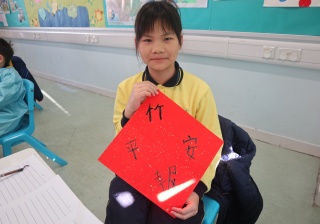 竹
平 安
報